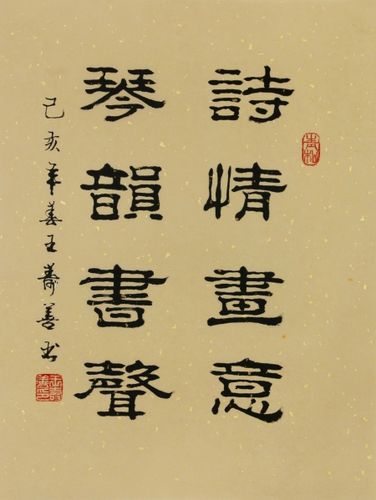 詩情畫意
琴韻書聲
己亥年春王壽善书